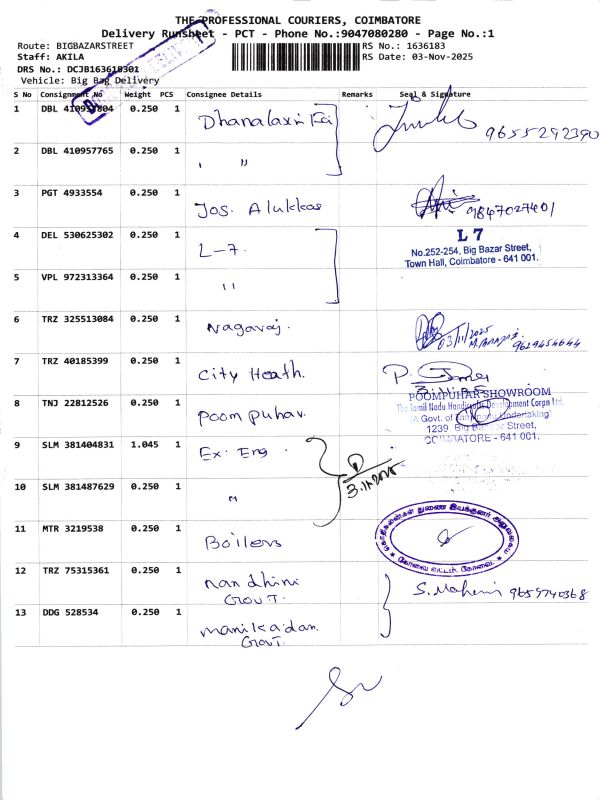 THE PROFESSIONAL COURIERS, COIMBATORE
Delivery Runsheet - PCT - Phone No.:9047080280 - Page No.:1
Route: BIGBAZARSTREET
RS No.: 1636183
Staff: AKILA
RS Date: 03-Nov-2025
DRS No.: DCJB163618301
Vehicle: Big Bag Delivery
S No Consignment No Weight PCS Consignee Details Remarks Seal & Signature
1 DBL 410957804 0.250 1 Dhanalaxmi 9655292390
2 DBL 410957765 0.250 1 , "
3 PGT 4933554 0.250 1 Jos. Alukkas 9847027401
4 DEL 530625302 0.250 1 L-7
L 7
No.252-254, Big Bazar Street,
Town Hall, Coimbatore - 641 001.
5 VPL 972313364 0.250 1 "
6 TRZ 325513084 0.250 1 Nagaraj. 03/11/2025
9629454644
7 TRZ 40185399 0.250 1 City Heath.
8 TNJ 22812526 0.250 1 Poompuhar.
POOMPUHAR SHOWROOM
The Tamil Nadu Handicrafts Development Corpn Ltd.
(A Govt. of Tamil Nadu Undertaking)
1239 Big Bazaar Street,
COIMBATORE - 641 001.
9 SLM 381404831 1.045 1 Ex. Eng.
3.11.2025
10 SLM 381487629 0.250 1 "
11 MTR 3219538 0.250 1 Boilers
கோவை வட்டம், கோவை.
12 TRZ 75315361 0.250 1 Nandhini
GOVT.
S. Maheni 9659740368
13 DDG 528534 0.250 1 Manikadan.
GOVT.